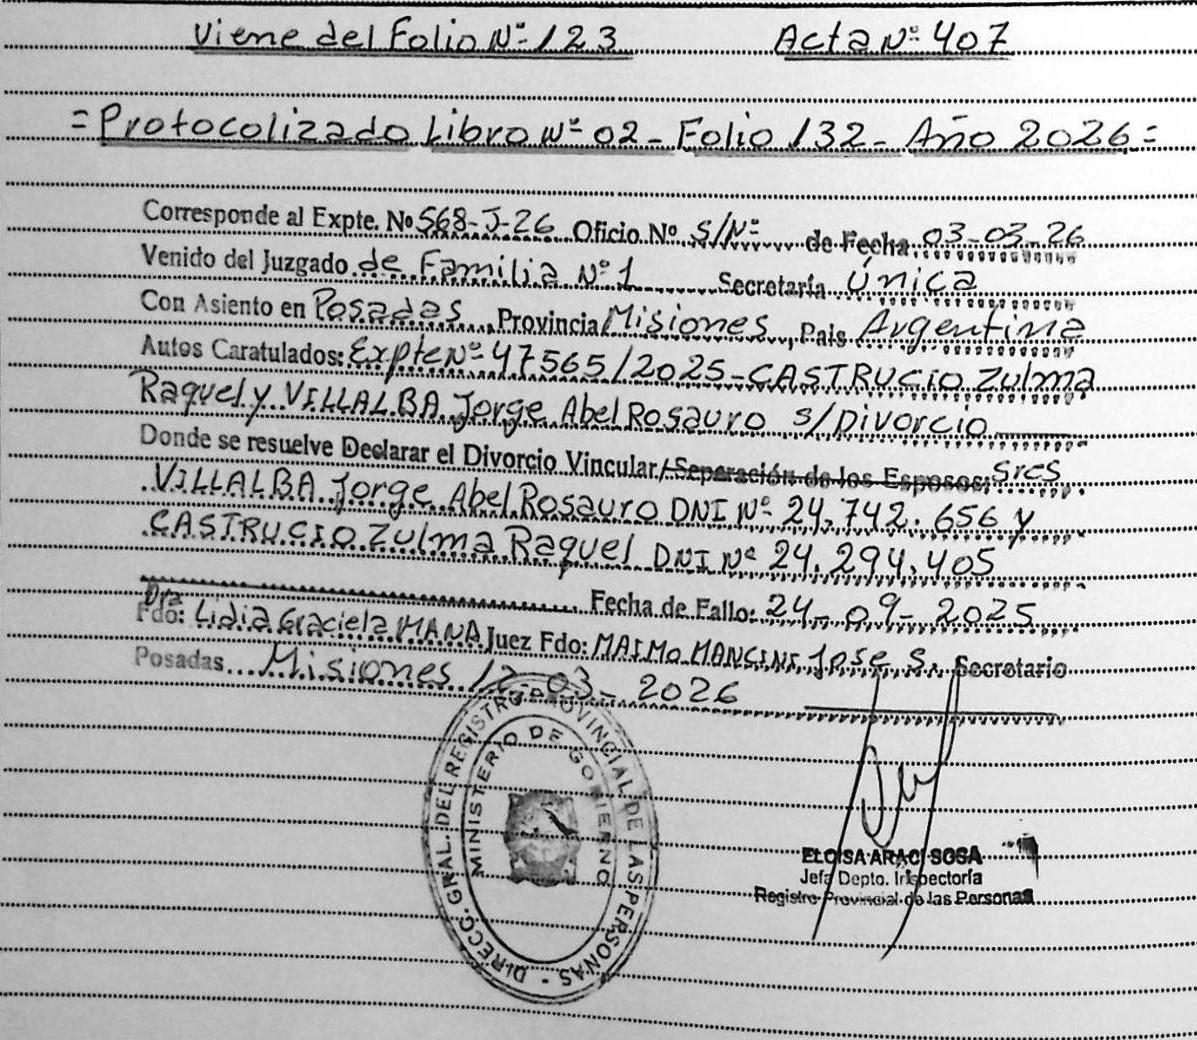 Viene del Folio Nº 123 Acta Nº 407
= Protocolizado Libro Nº 02 - Folio 132 - Año 2026 =
Corresponde al Expte. Nº 568-J-26 Oficio Nº S/Nº de Fecha 03-03-26
Venido del Juzgado de Familia Nº 1 Secretaría Única
Con Asiento en Posadas Provincia Misiones, País Argentina
Autos Caratulados: Expte Nº 47565/2025 - CASTRUCIO Zulma
Raquel y VILLALBA Jorge Abel Rosauro s/Divorcio
Donde se resuelve Declarar el Divorcio Vincular/Separación de los Esposos: Sres
VILLALBA Jorge Abel Rosauro DNI Nº 24.742.656 y
CASTRUCIO Zulma Raquel DNI Nº 24.294.405
Fecha de Fallo: 24-09-2025
Dra
Fdo: Lidia Graciela MANA Juez Fdo: MAIMO MANCINI Jose S. Secretario
Posadas Misiones 12-03-2026
DIRECC. GRAL. DEL REGISTRO PROVINCIAL DE LAS PERSONAS -
MINISTERIO DE GOBIERNO
ELOISA ARACI SOSA
Jefa Depto. Inspectoría
Registro Provincial de las Personas